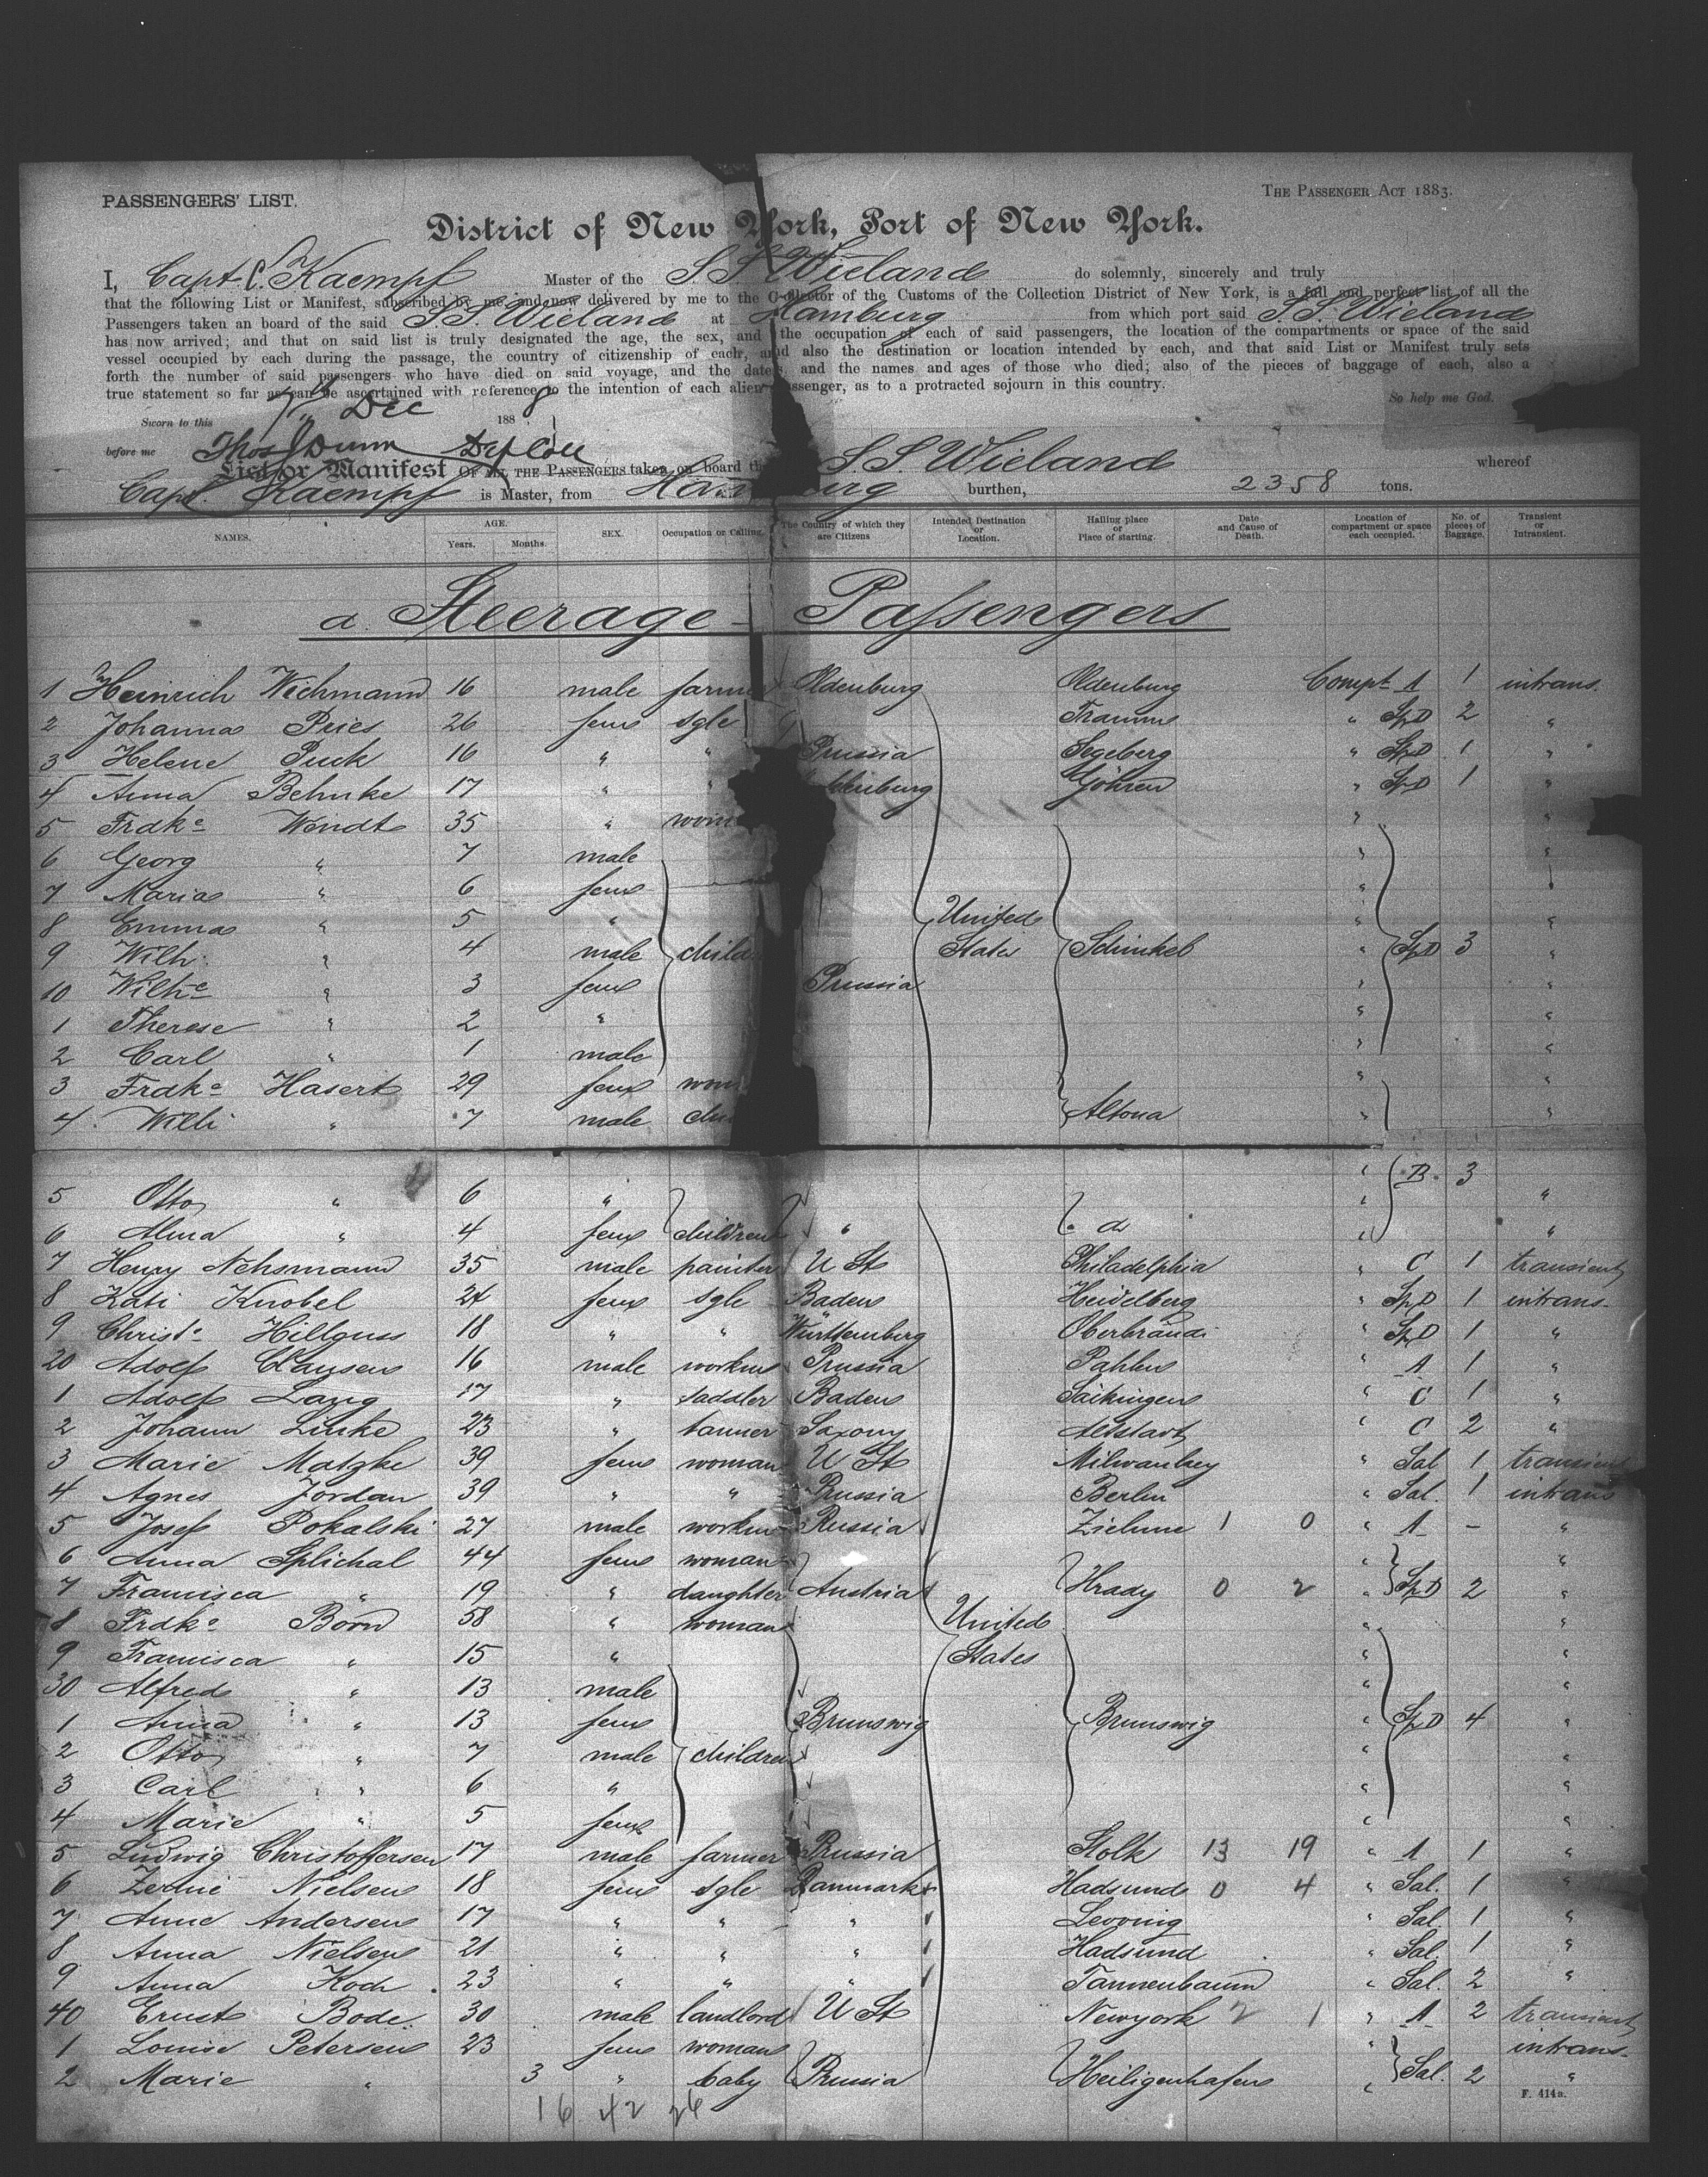 PASSENGERS' LIST.
THE PASSENGER ACT 1883.
District of New York, Port of New York.
I, Capt. C. Kaempf Master of the S. S. Wieland do solemnly, sincerely and truly
that the following List or Manifest, subscribed by me and now delivered by me to the Collector of the Customs of the Collection District of New York, is a full and perfect list of all the
Passengers taken an board of the said S. S. Wieland at Hamburg from which port said S. S. Wieland
has now arrived; and that on said list is truly designated the age, the sex, and the occupation of each of said passengers, the location of the compartments or space of the said
vessel occupied by each during the passage, the country of citizenship of each, and also the destination or location intended by each, and that said List or Manifest truly sets
forth the number of said passengers who have died on said voyage, and the dates, and the names and ages of those who died; also of the pieces of baggage of each, also a
true statement so far as can be ascertained with reference to the intention of each alien passenger, as to a protracted sojourn in this country.
So help me God.
Sworn to this 7th Dec 1888
before me Thos J Dunn Dep Coll
List or Manifest OF ALL THE PASSENGERS taken on board the S. S. Wieland whereof
Capt Kaempf is Master, from Hamburg burthen, 2358 tons.
NAMES. AGE. Years. Months. SEX. Occupation or Calling. The Country of which they are Citizens Intended Destination or Location. Hailing place or Place of starting. Date and Cause of Death. Location of compartment or space each occupied. No. of pieces of Baggage. Transient or Intransient.
a. Steerage - Passengers
1 Heinrich Wichmann 16 male farmer Oldenburg Oldenburg Compt A 1 intrans.
2 Johanna Pries 26 fem sgle Tramm " SpD 2 "
3 Helene Puck 16 " " Prussia Segeberg " SpD 1 "
4 Anna Behnke 17 " " Göhren " SpD 1 "
5 Frdke Wendt 35 " wom " "
6 Georg " 7 male " "
7 Maria " 6 fem " "
8 Emma " 5 " United " "
9 Wilh. " 4 male child States Schinkel " SpD 3 "
10 Wilhe " 3 fem Prussia " "
1 Therese " 2 " " "
2 Carl " 1 male " "
3 Frdke Hasert 29 fem wom " "
4 Willi " 7 male Altona " "
5 Otto " 6 " " B. 3 "
6 Alma " 4 fem children " do " "
7 Henry Nehsmann 35 male painter U St Philadelphia " C 1 transient
8 Kati Knobel 24 fem sgle Baden Heidelberg " SpD 1 intrans.
9 Christe Hillguss 18 " " Württemberg " SpD 1 "
20 Adolf Claysen 16 male workm Prussia Pahlen " A 1 "
1 Adolf Lang 17 " saddler Baden Säckingen " C 1 "
2 Johann Linke 23 " tanner Saxony Altstadt " C 2 "
3 Marie Matzke 39 fem woman U St Milwaukey " Sal 1 transient
4 Agnes Jordan 39 " " Prussia Berlin " Sal. 1 intrans
5 Josef Pokalski 27 male workm Russia Zielune 1 0 " A - "
6 Anna Splichal 44 fem woman " "
7 Francisca " 19 " daughter Austria Hrady 0 2 " SpD 2 "
8 Frdke Born 58 " woman United " "
9 Francisca " 15 " States " "
30 Alfred " 13 male " "
1 Anna " 13 fem Brunswig Brunswig " SpD 4 "
2 Otto " 7 male children " "
3 Carl " 6 " " "
4 Marie " 5 fem " "
5 Ludwig Christoffersen 17 male farmer Prussia Stolk 13 19 " A 1 "
6 Nielsen 18 fem sgle Danmark Hadsund 0 4 " Sal. 1 "
7 Anne Andersen 17 " " " " Sal 1 "
8 Anna Nielsen 21 " " " Hadsund " Sal. 1 "
9 Anna Koch 23 " " " Tannenbaum " Sal. 2 "
40 Ernst Bode 30 male landlord U St Newyork 2 1 " A 2 transient
1 Louise Petersen 23 fem woman " intrans.
2 Marie " 3 " baby Prussia Heiligenhafen " Sal. 2 "
16 42 26
F. 414a.